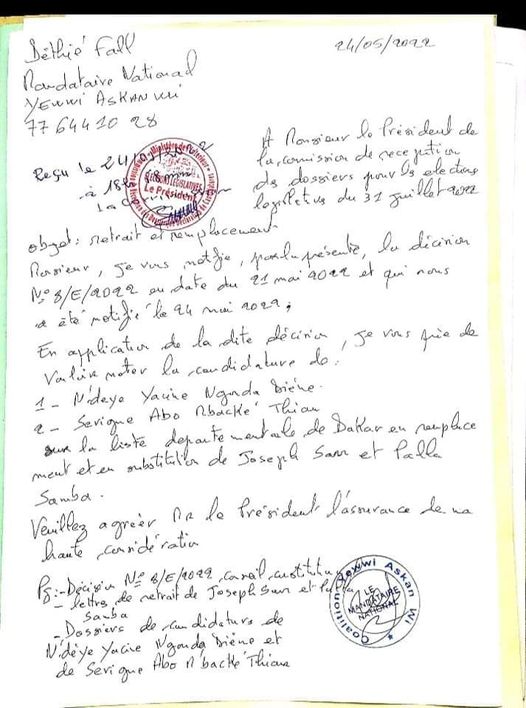 Déthié Fall
24/05/2022
Mandataire National
YEWWI ASKAN WI
77 644 10 28
A Monsieur le Président de
la commission de reception
des dossiers pour les elections
legislatives du 31 juillet 2022
Reçu le 24
à 18h
La
Ministère de l'Interieur
Le Président
objet: retrait et remplacement
Monsieur, je vous notifie, par la présente, la décision
N° 8/E/2022 en date du 21 mai 2022 et qui nous
a été notifié le 24 mai 2022;
En application de la dite décision, je vous prie de
valoir noter la candidature de:
1 - Ndèye Yacine Ngonda Diène.
2 - Serigne Abo Mbacké Thiam
sur la liste departementale de Dakar en remplace
ment et en substitution de Joseph Sarr et Palla
Samba.
Veuillez agréer Mr le Président l'assurance de ma
haute considération
PJ:-Décision N° 8/E/2022 conseil constitu
- lettres de retrait de Joseph Sarr et Palla
Samba
- Dossiers de candidature de
Ndèye Yacine Ngonda Diène et
de Serigne Abo Mbacké Thiam
Coalition Yewwi Askan Wi
LE
MANDATAIRE
NATIONAL